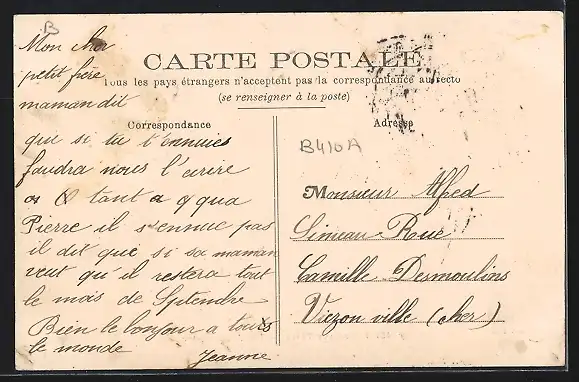 B
Mon cher
petit frère
maman dit
CARTE POSTALE
Tous les pays étrangers n'acceptent pas la correspondance au recto
(se renseigner à la poste)
Correspondance
que si tu t'ennuies
faudra nous l'ecrire
tant a
Pierre il s'ennuie pas
il dit que si sa maman
veut qu'il restera tout
le mois de Septendre
Bien le bonjour a tous
le monde
Jeanne
Adresse
B410A
Monsieur Alfed
Simeau Rue
Camille Desmoulins
Viezon ville (cher)